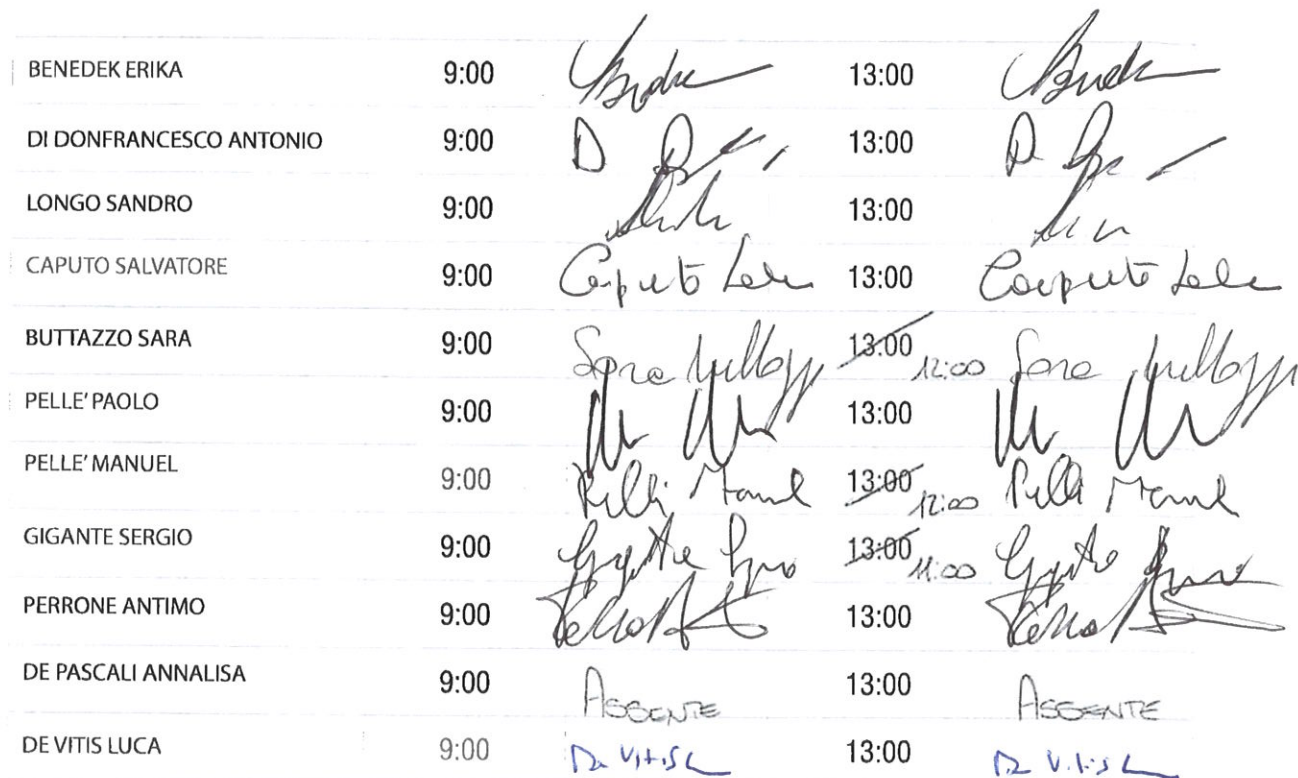 BENEDEK ERIKA 9:00 13:00
DI DONFRANCESCO ANTONIO 9:00 D 13:00
LONGO SANDRO 9:00 13:00
CAPUTO SALVATORE 9:00 Caputo 13:00 Caputo
BUTTAZZO SARA 9:00 Sara 13:00 12:00 Sara
PELLE' PAOLO 9:00 13:00
PELLE' MANUEL 9:00 13:00 12:00
GIGANTE SERGIO 9:00 13:00 11:00
PERRONE ANTIMO 9:00 13:00
DE PASCALI ANNALISA 9:00 ASSENTE 13:00 ASSENTE
DE VITIS LUCA 9:00 De Vitis L 13:00 De Vitis L